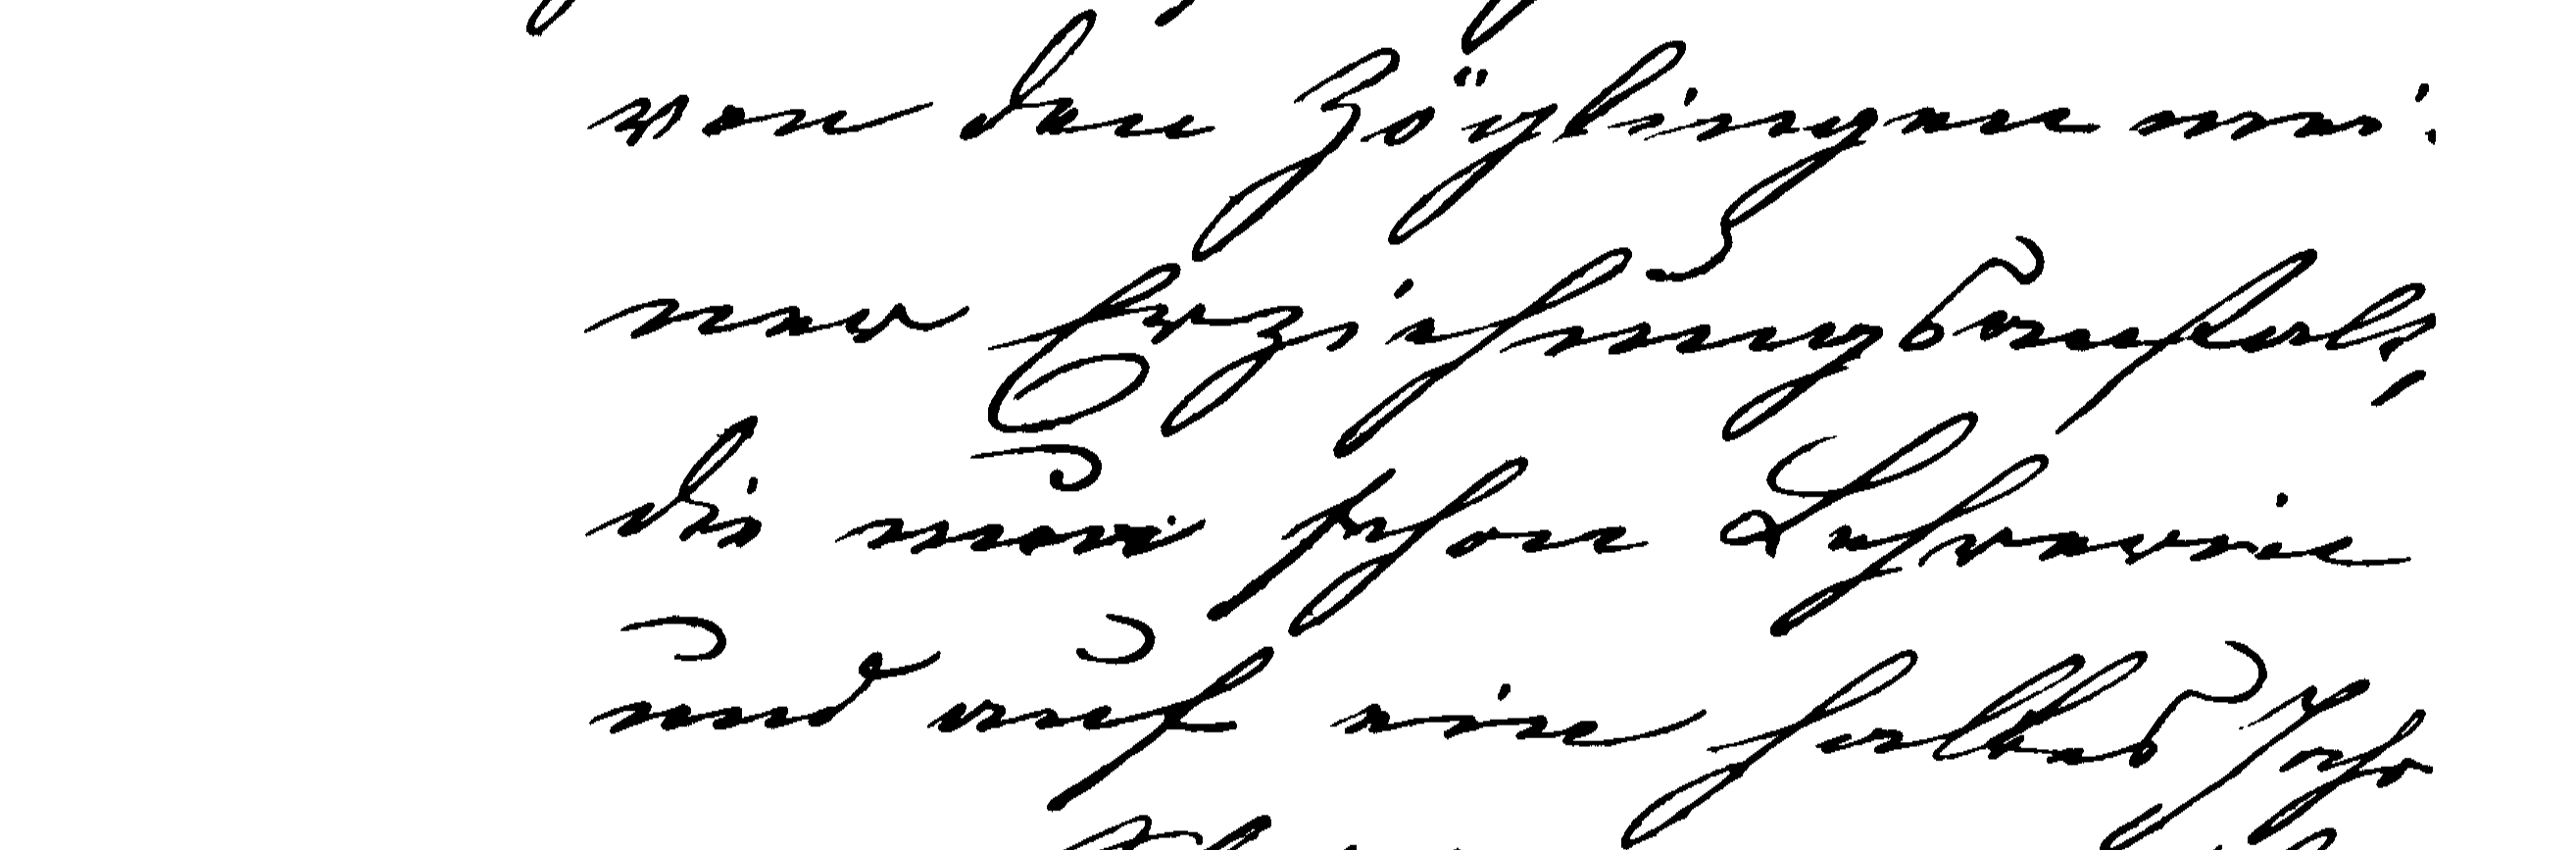 von den Zöglingen mei:
ner Erziehungsanstalt,
die nun schon Lehrerin
und auf ein halbes Jahr